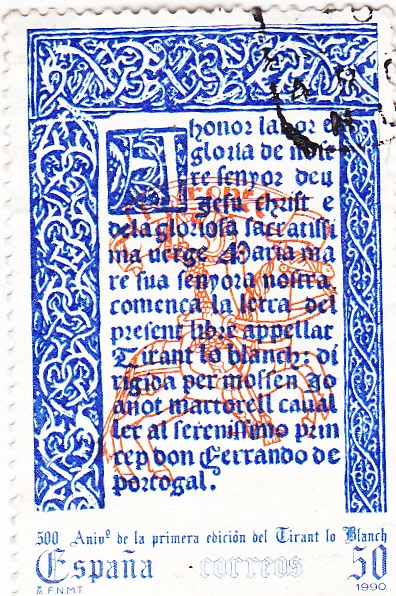 A honor lahor e
gloria de nostre
re senyor deu
Jesu christ e
dela gloriosa sacratissi
ma verge Maria ma
re sua senyora nostra
comença la letra del
present libre appellat
Tirant lo blanch: di
rigida per mossen Jo
anot martorell caval
ler al serenissimo prin
cep don Ferrando de
portogal.
500 Anivº de la primera edición del Tirant lo Blanch
España correos 50
F.N.M.T 1990